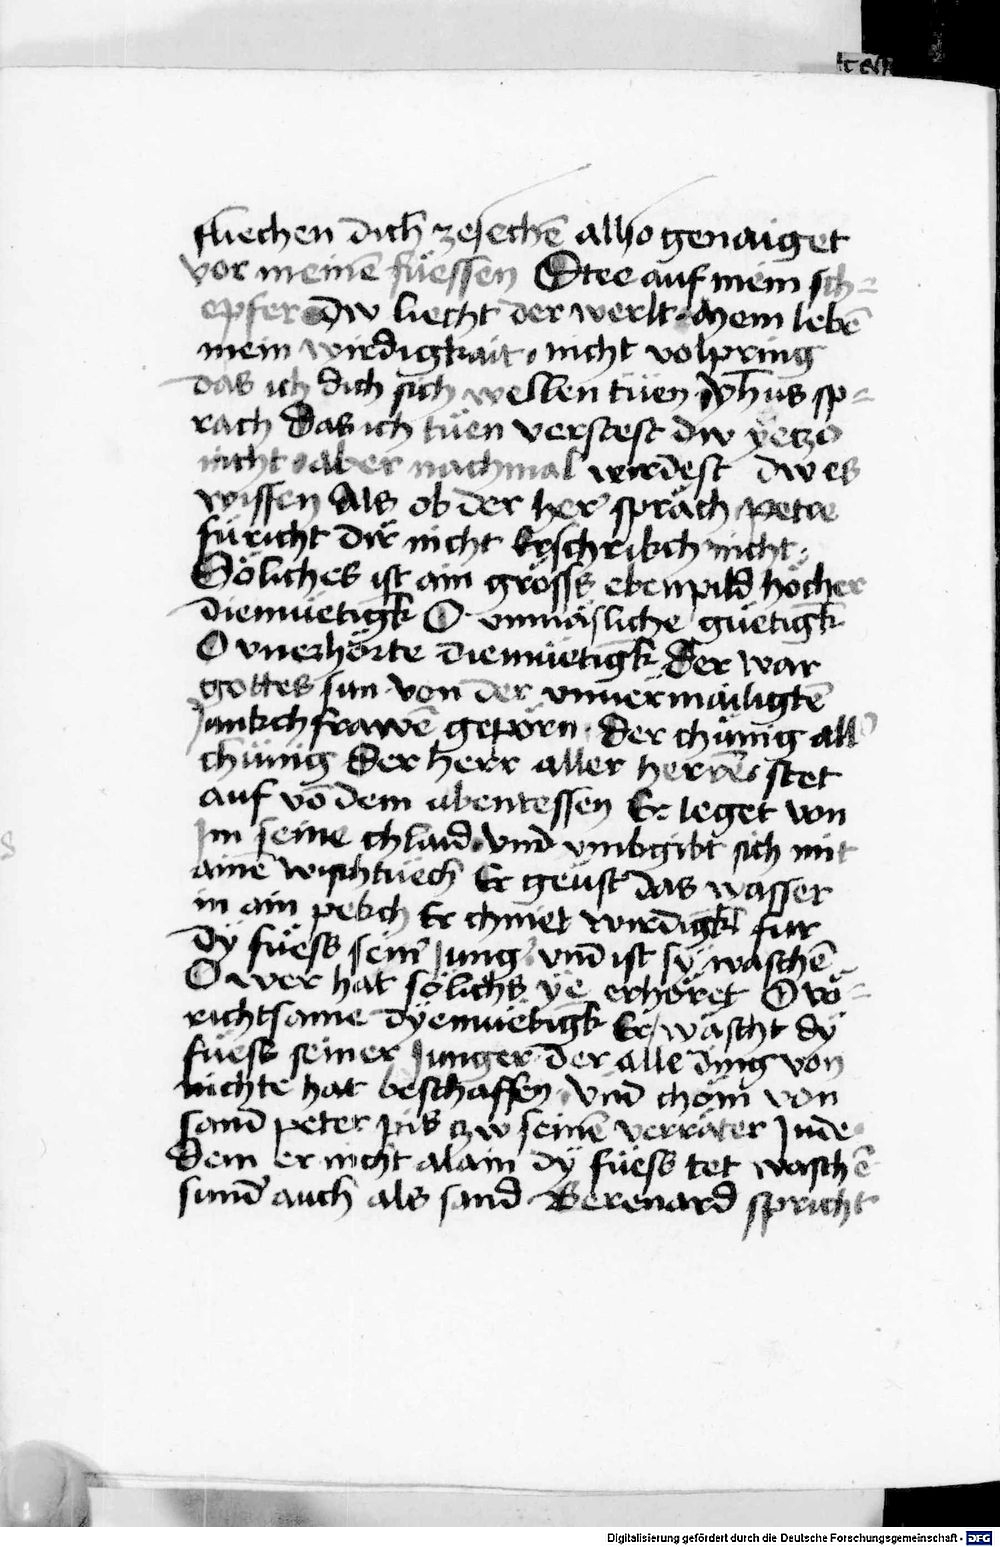 fliechen dich zesechē allso genaiget
vor meinē füessen Stee auf mein sch=
epfer dw liecht der werlt mein lebē
mein wirdigkait nicht volpring
das ich dich sich wellen tüen Jhūs sp=
rach Das ich tüen verstest dw yetzo
nicht aber nachmal wirdest dw es
wissen Als ob der her spräch petre
füricht dir nicht Erschrikch nicht
Söliches ist ain gröss ebenpild höcher
diemüetigk O unmäsliche güetigk
O vnerhörte diemüetigk Der war
gottes sun von der vnuermäiligtē
junkchfrawē geporn Der chünig all
chünig Der herr aller herrē stet
auf vō dem abentessen Er leget von
Im seine chlaid vnd vmbgibt sich mit
ainē wischtüech Er geust das wasser
in ain pekch Er chniet wirdigkl fur
dy füess sein Jung vnd ist sy waschē
O wer hat sölichs ye erhöret O vö=
richtsame dyemüetigk Er wäscht dy
füess seiner Junger der alle ding von
nichte hat beschaffen vnd chöm von
sand peter pis zw seinē verräter Jude
Dem er nicht alain dy füess tet waschē
sund auch als sand Berenard spricht
Digitalisierung gefördert durch die Deutsche Forschungsgemeinschaft - DFG